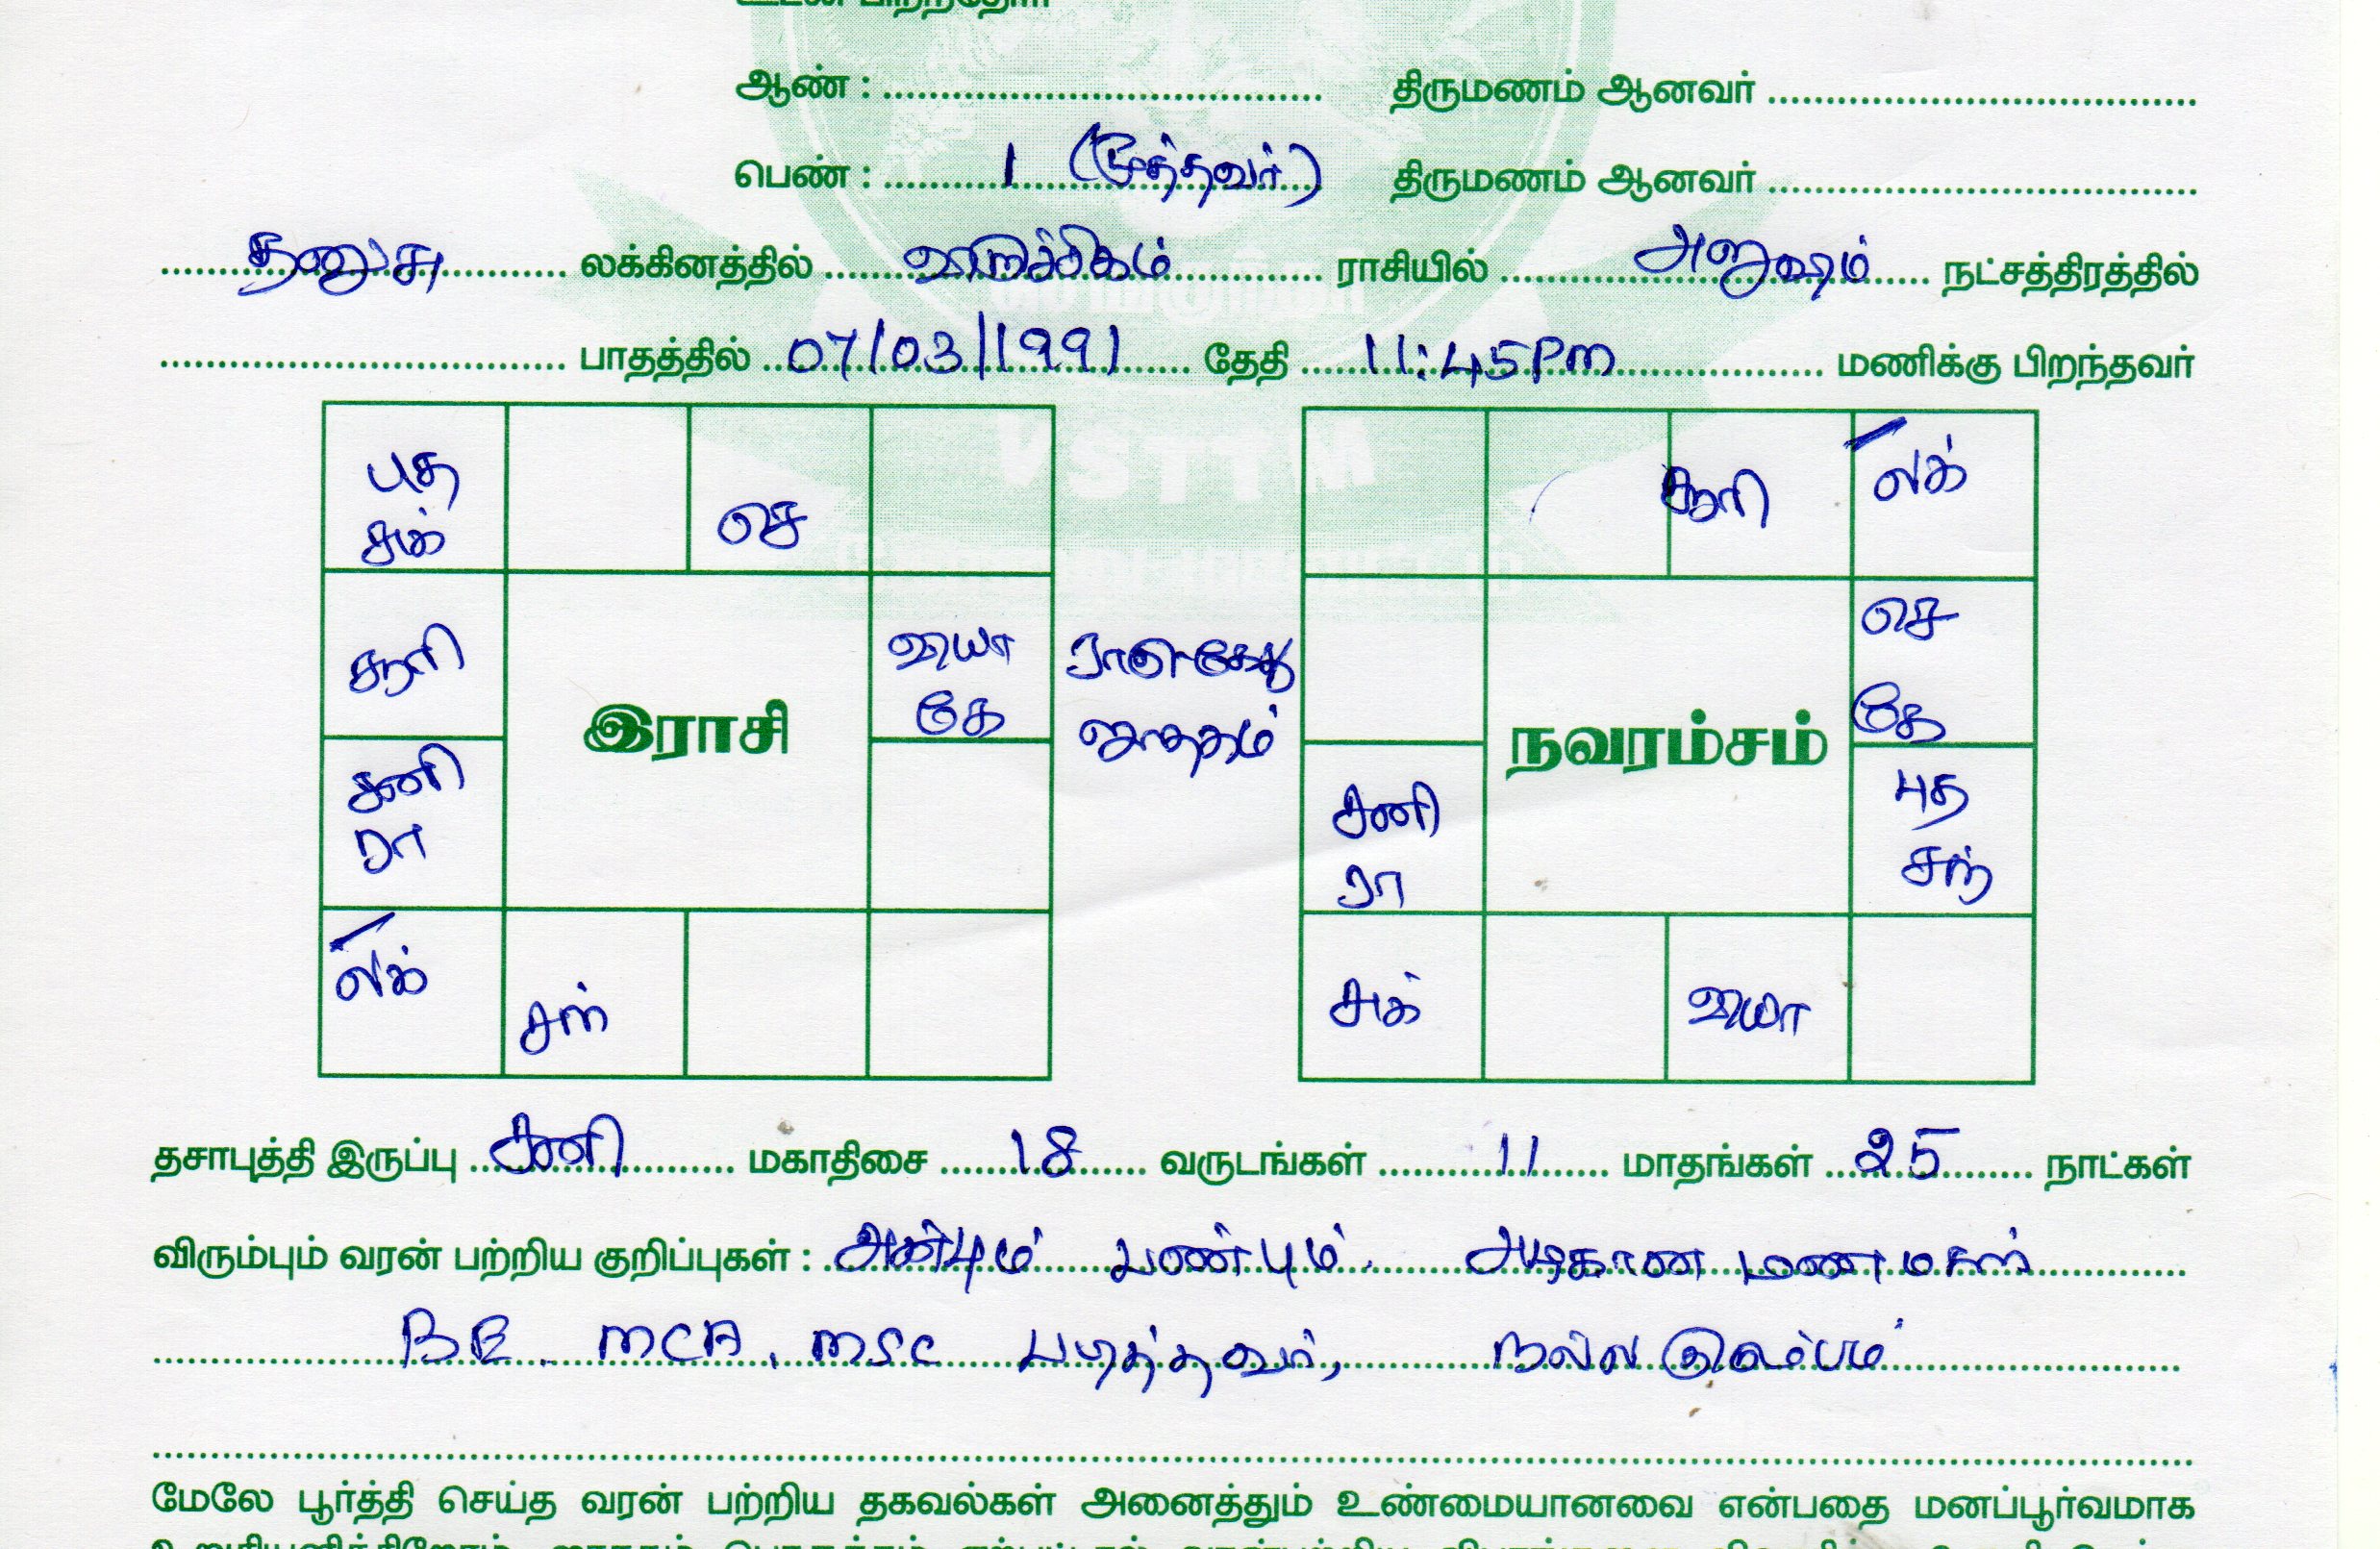 ஆண் : திருமணம் ஆனவர்
பெண் : 1 (மூத்தவர்) திருமணம் ஆனவர்
தனுசு லக்கினத்தில் விருச்சிகம் ராசியில் அனுஷம் நட்சத்திரத்தில்
பாதத்தில் 07/03/1991 தேதி 11:45 Pm மணிக்கு பிறந்தவர்
புத செ சூரி லக்
சுக்
சூரி வியா ராகு கேது செ
இராசி கே ஜாதகம் நவரம்சம் கே
சனி சனி புத
ரா ரா சந்
லக் சந் சுக் வியா
தசாபுத்தி இருப்பு சனி மகாதிசை 18 வருடங்கள் 11 மாதங்கள் 25 நாட்கள்
விரும்பும் வரன் பற்றிய குறிப்புகள் : அன்பும் பண்பும். அழகான மணமகள்
BE. MCA, MSC படித்தவர், நல்ல குடும்பம்
மேலே பூர்த்தி செய்த வரன் பற்றிய தகவல்கள் அனைத்தும் உண்மையானவை என்பதை மனப்பூர்வமாக